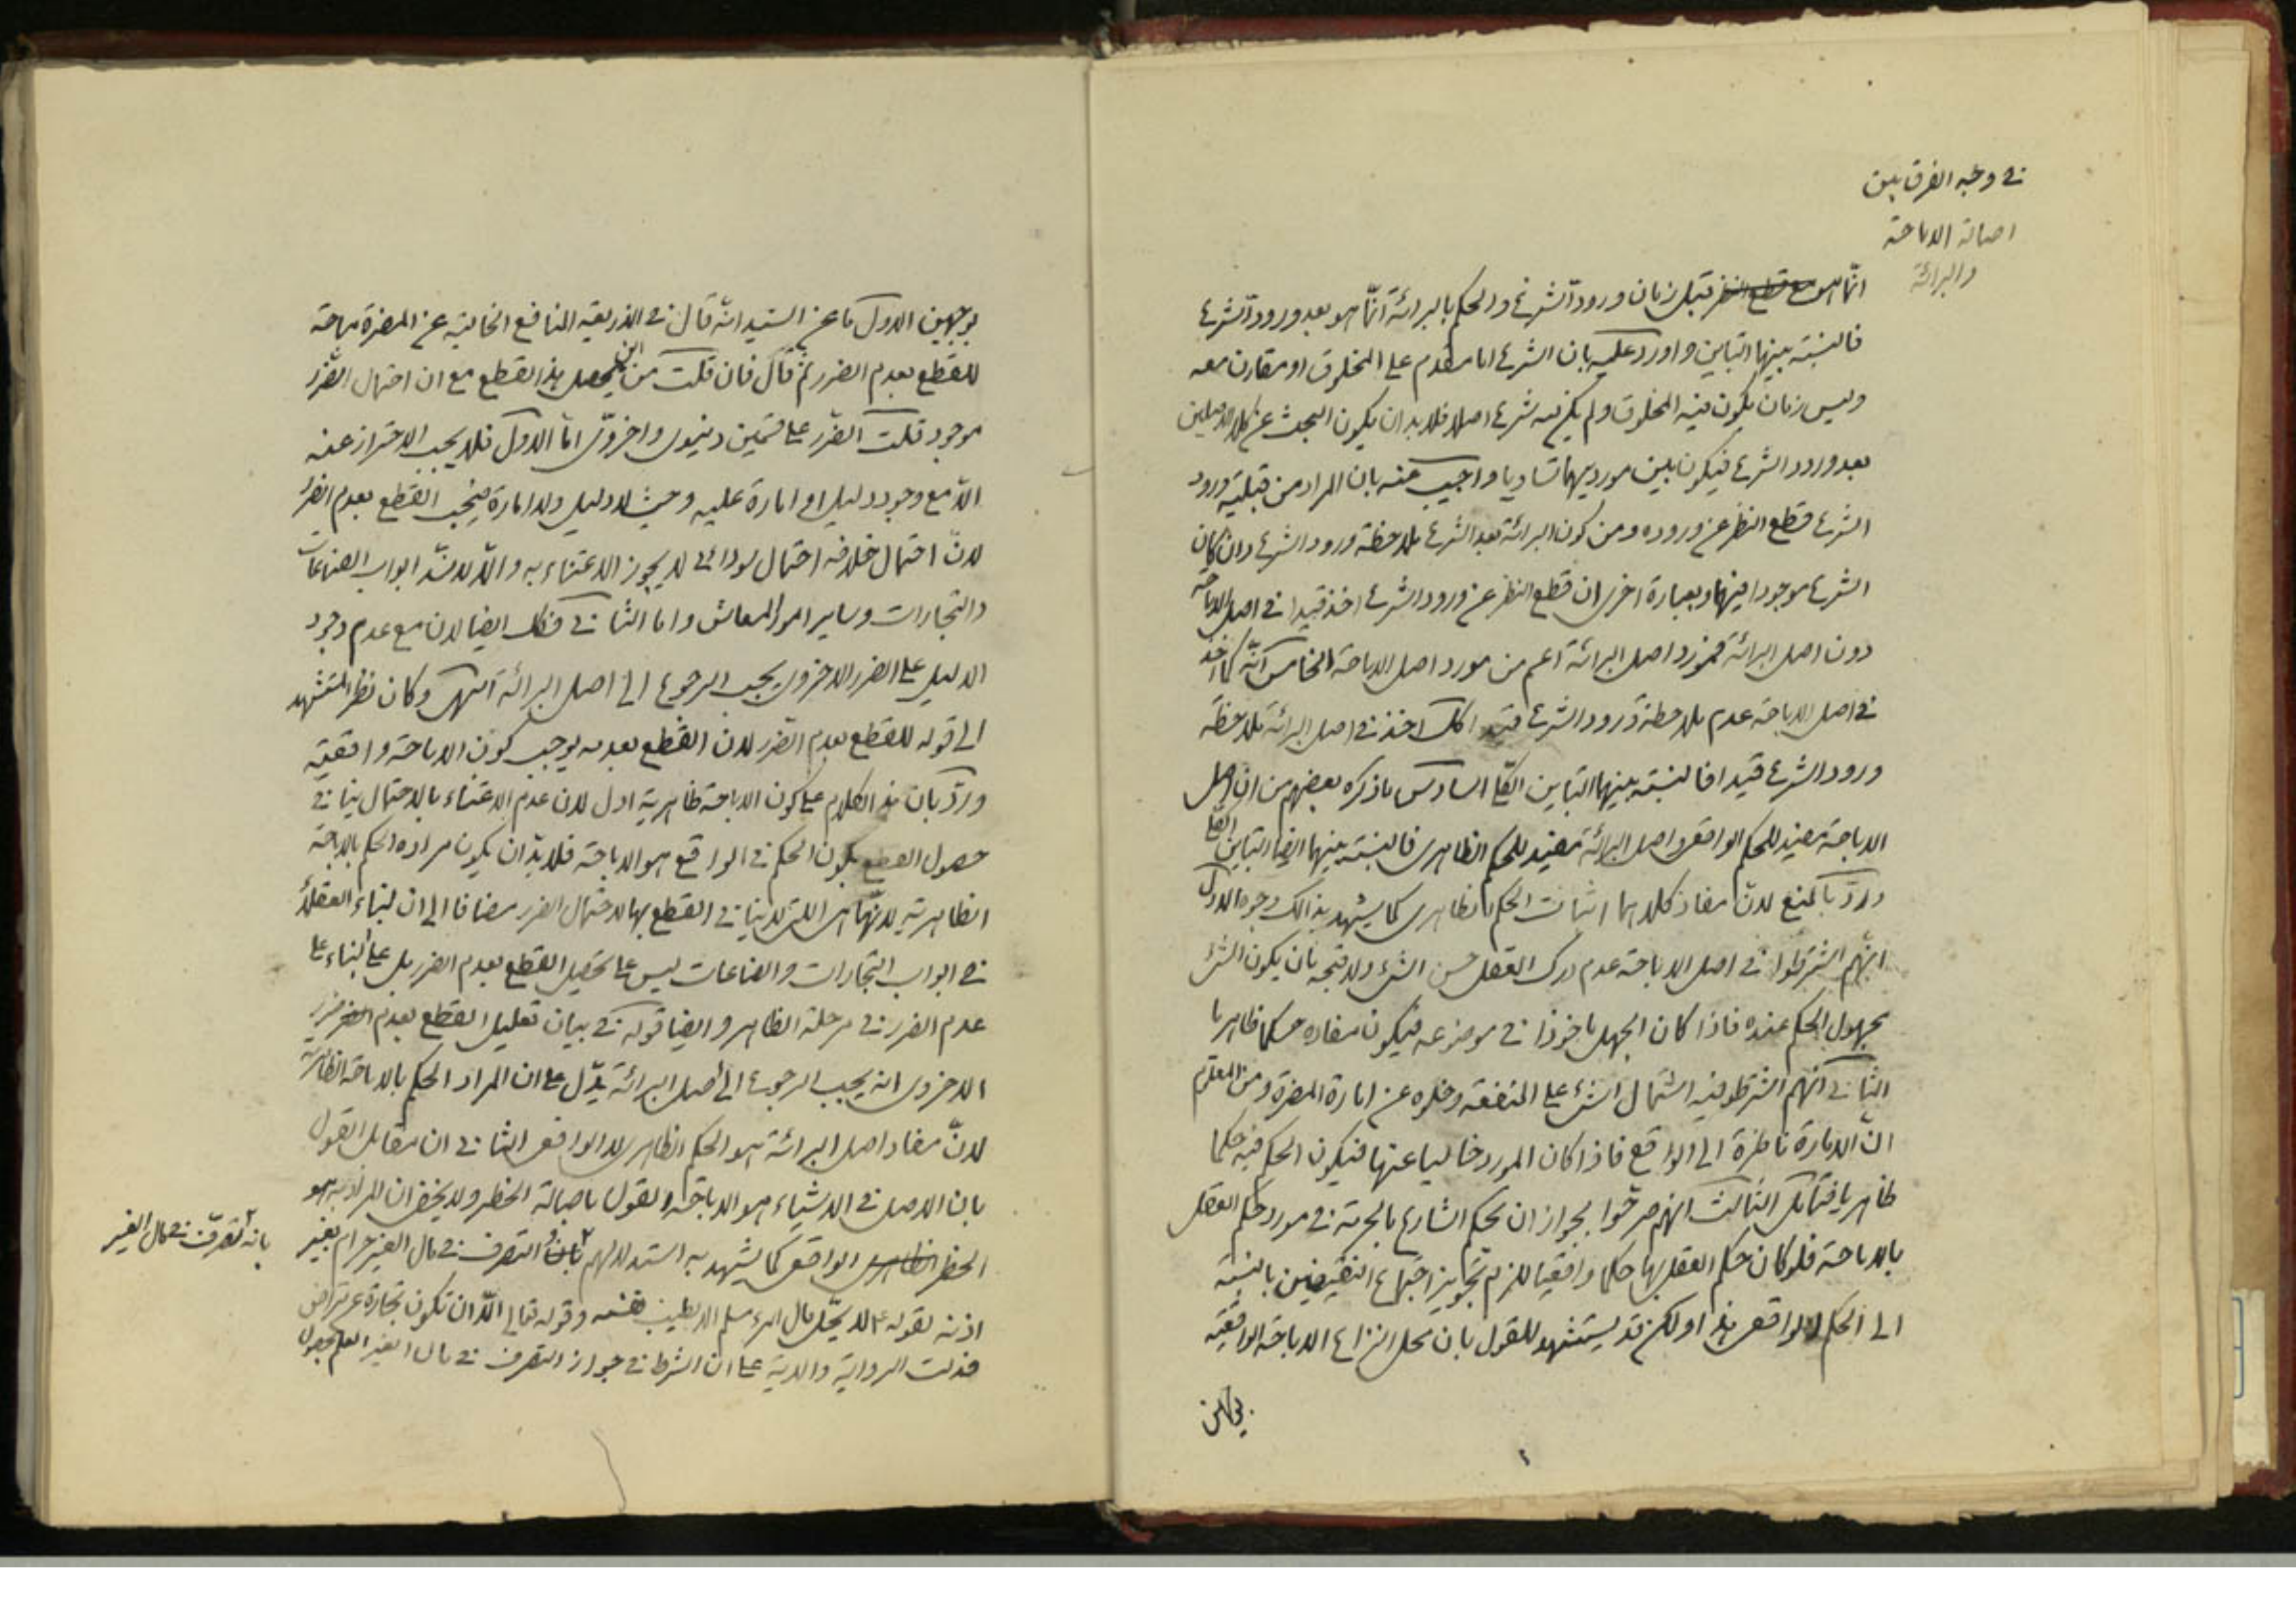 في وجه الفرق بين
اصالة الاباحة
والبرائة
انّما هو مع قطع النظر قبل زمان ورود الشرع والحكم بالبرائة انّما هو بعد ورود الشرع
فالنسبة بينهما التباين واورد عليه بان الشرع اما مقدم على المخلوق او مقارن معه
وليس زمان يكون فيه المخلوق ولم يكن فيه شرع اصلا فلا بد ان يكون البحث عن كلا الاصلين
بعد ورود الشرع فيكون بين مورديهما تساويا واجيب عنه بان المراد من قبلية ورود
الشرع قطع النظر عن وروده ومن كون البرائة بعد الشرع ملاحظة ورود الشرع وان كان
الشرع موجودا فيهما وبعبارة اخرى ان قطع النظر عن ورود الشرع اخذ قيدا في اصل الاباحة
دون اصل البرائة فمورد اصل البرائة اعم من مورد اصل الاباحة الخامس انّه كما اخذ
في اصل الاباحة عدم ملاحظة ورود الشرع قيدا كك اخذ في اصل البرائة ملاحظة
ورود الشرع قيدا فالنسبة بينهما التباين الكلي السادس ما ذكره بعضهم من ان اصل
الاباحة مفيد للحكم الواقعي واصل البرائة مفيد للحكم الظاهري فالنسبة بينهما ايضا التباين الكلي
وردّ بالمنع لانّ مفاد كلاهما اثبات الحكم الظاهري كما يشهد بذالك وجوه الاول
انهم اشترطوا في اصل الاباحة عدم درك العقل حسن الشئ ولا قبحه بان يكون الشئ
مجهول الحكم عنده فاذا كان الجهل ماخوذا في موضوعه فيكون مفاده حكما ظاهريا
الثاني انهم اشترطوا فيه اشتمال الشئ على المنفعة وخلوه عن امارة المضرة ومن المعلوم
انّ الامارة ناظرة الى الواقع فاذا كان المورد خاليا عنها فيكون الحكم فيه حكما
ظاهريا فتامل الثالث انهم صرحوا بجواز ان يحكم الشارع بالحرمة في مورد حكم العقل
بالاباحة فلو كان حكم العقل بها حكما واقعيا للزم تجويز اجتماع النقيضين بالنسبة
الى الحكم الواقعي هذا ولكن قد يستشهد للقول بان محل النزاع الاباحة الواقعية
بوجهين
بوجهين الاول ما عن السيد انّه قال في الذريعة المنافع الخالية عن المضرة مباحة
للقطع بعدم الضرر ثم قال فان قلت من اين يحصل هذا القطع مع ان احتمال الضرر
موجود قلت الضرر على قسمين دنيوي واخروي امّا الاول فلا يجب الاحتراز عنه
الاّ مع وجود دليل او امارة عليه وحيث لا دليل ولا امارة فيجب القطع بعدم الضرر
لانّ احتمال خلافه احتمال سودائي لا يجوز الاعتناء به والاّ لانسدّ ابواب الصناعات
والتجارات وساير امور المعاش واما الثاني فكك ايضا لان مع عدم وجود
الدليل على الضرر الاخروي يجب الرجوع الى اصل البرائة انتهى وكان نظر المستشهد
الى قوله للقطع بعدم الضرر لان القطع بعدمه يوجب كون الاباحة واقعية
وردّ بان هذا الكلام على كون الاباحة ظاهرية ادل لان عدم الاعتناء بالاحتمال ينافي
حصول القطع بكون الحكم في الواقع هو الاباحة فلا بدّ ان يكون مراده الحكم بالاباحة
الظاهرية لانّها هي التي لا ينافي القطع بها لاحتمال الضرر مضافا الى ان بناء العقلاء
في ابواب التجارات والصناعات ليس على تحصيل القطع بعدم الضرر بل على البناء على
عدم الضرر في مرحلة الظاهر وايضا قوله في بيان تعليل القطع بعدم الضرر
الاخروي انه يجب الرجوع الى اصل البرائة يدّل على ان المراد الحكم بالاباحة الظاهرية
لانّ مفاد اصل البرائة هو الحكم الظاهري لا الواقعي الثاني ان مقابل القول
بان الاصل في الاشياء هو الاباحة القول باصالة الحظر ولا يخفى ان المراد به هو
الحظر الظاهري الواقعي كما يشهد به استدلالهم بان التصرف في مال الغير حرام بغير
بانه تصرّف في مال الغير
اذنه لقوله ع لا يحّل مال امرء مسلم الا بطيب نفسه وقوله تعالى الاّ ان تكون تجارة عن تراض
فدلت الرواية والاية على ان الشرط في جواز التصرف في مال الغير العلم بحصول